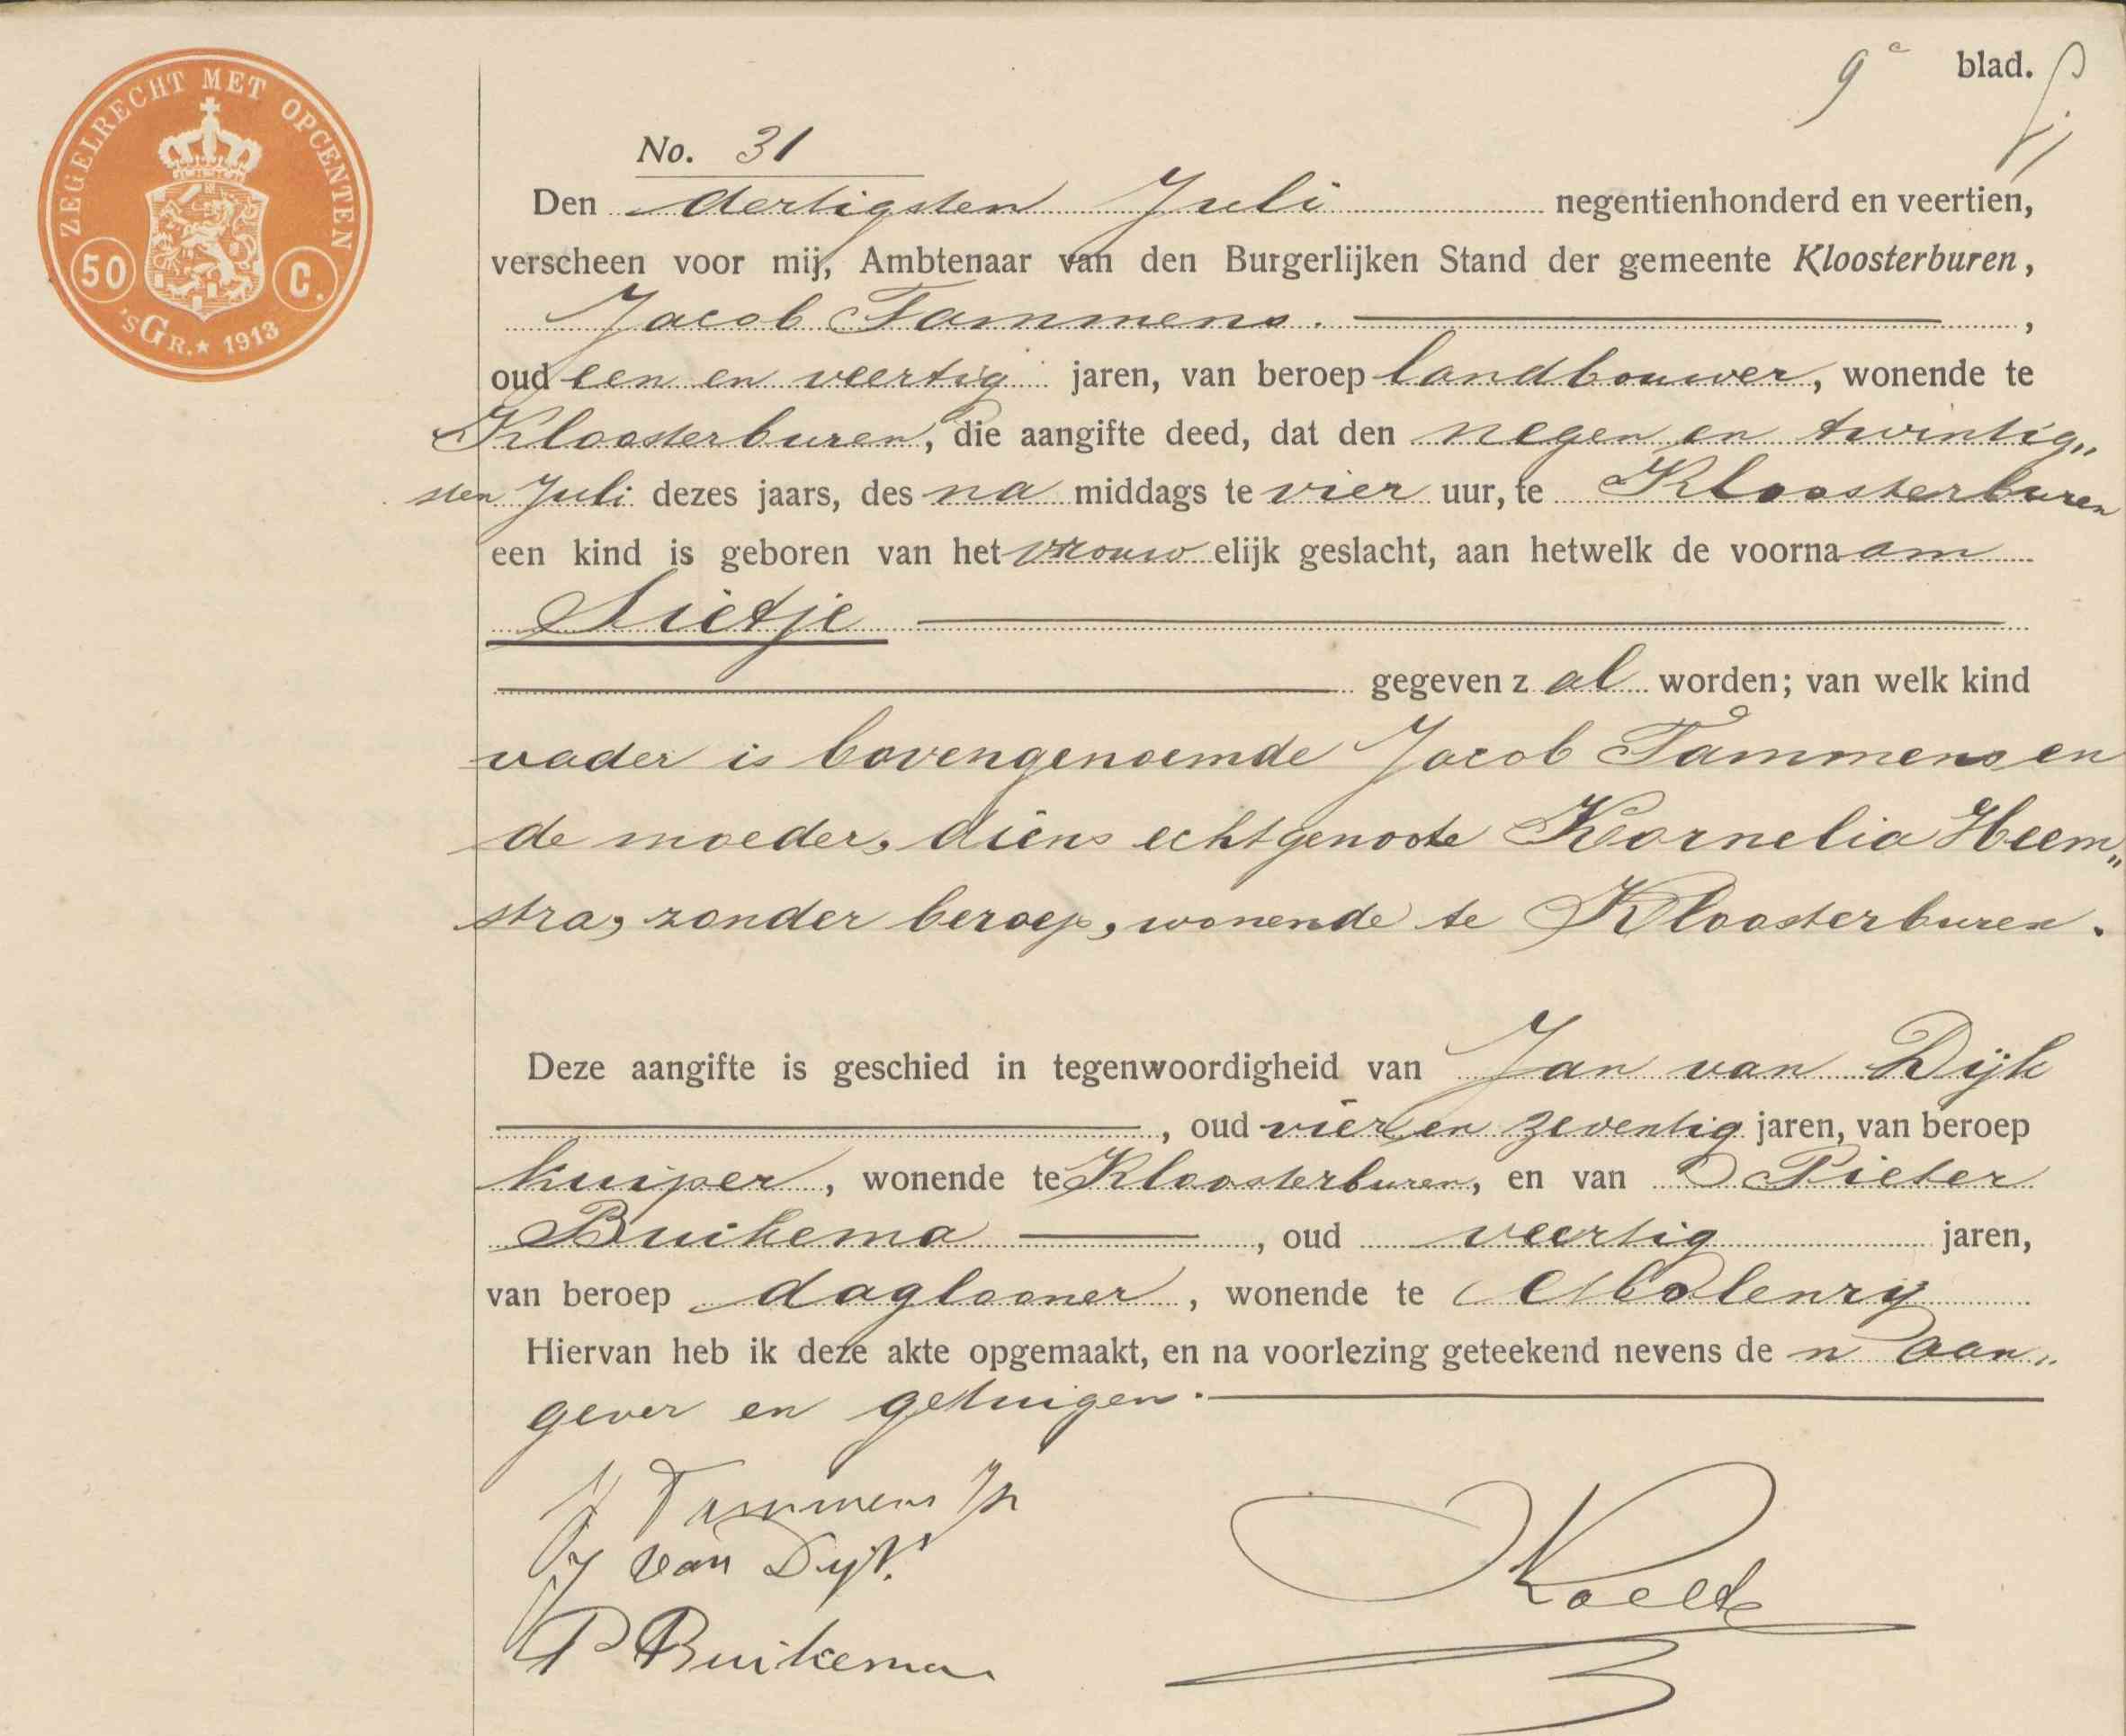 ZEGELRECHT MET OPCENTEN
50 C.
'SGR.★1913
9e blad.
No. 31
Den dertigsten Juli negentienhonderd en veertien,
verscheen voor mij, Ambtenaar van den Burgerlijken Stand der gemeente Kloosterburen,
Jacob Tammens.
oud een en veertig jaren, van beroep landbouwer, wonende te
Kloosterburen, die aangifte deed, dat den negen en twintig„
sten Juli dezes jaars, des na middags te vier uur, te Kloosterburen
een kind is geboren van het vrouwelijk geslacht, aan hetwelk de voornaam
Sietje
gegeven zal worden; van welk kind
vader is bovengenoemde Jacob Tammens en
de moeder, diens echtgenoote Kornelia Heem„
stra, zonder beroep, wonende te Kloosterburen.
Deze aangifte is geschied in tegenwoordigheid van Jan van Dijk
, oud vier en zeventig jaren, van beroep
kuiper, wonende te Kloosterburen, en van Pieter
Buikema, oud veertig jaren,
van beroep daglooner, wonende te Molenrij
Hiervan heb ik deze akte opgemaakt, en na voorlezing geteekend nevens den aan„
gever en getuigen.
J Tammens Jz
J van Dijk.
P Buikema